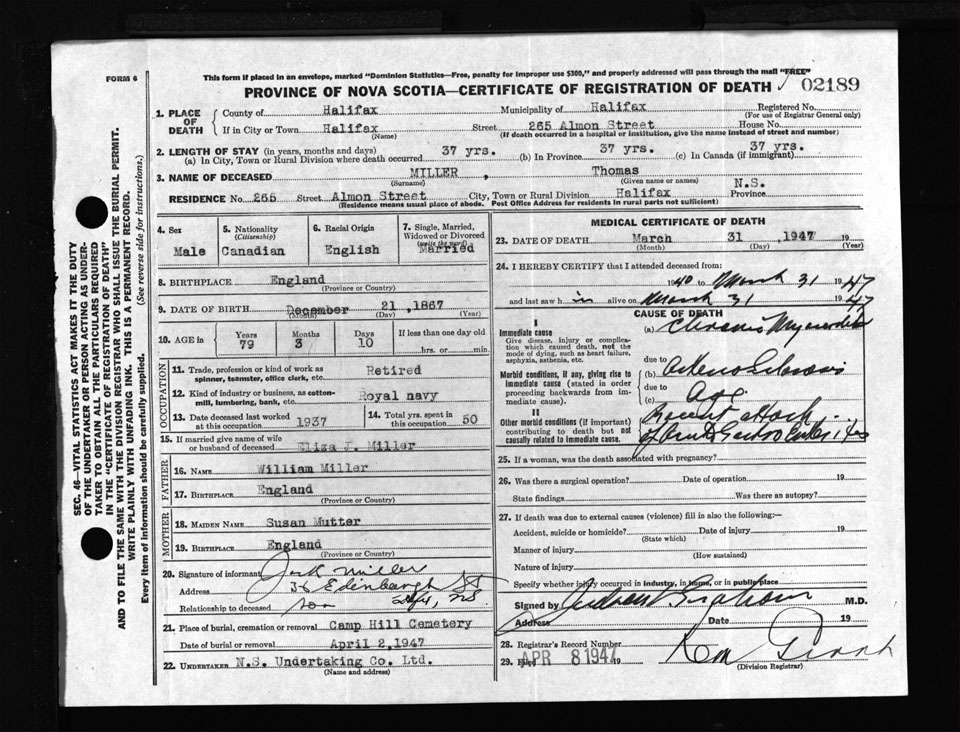 FORM 6
This form if placed in an envelope, marked "Dominion Statistics—Free, penalty for improper use $300," and properly addressed will pass through the mail "FREE"
PROVINCE OF NOVA SCOTIA—CERTIFICATE OF REGISTRATION OF DEATH
02189
1. PLACE OF DEATH
County of Halifax Municipality of Halifax Registered No.
(For use of Registrar General only)
If in City or Town Halifax Street 265 Almon Street House No.
(Name) (If death occurred in a hospital or institution, give the name instead of street and number)
2. LENGTH OF STAY (in years, months and days) 37 yrs. 37 yrs. 37 yrs.
(a) In City, Town or Rural Division where death occurred (b) In Province (c) In Canada (if immigrant)
3. NAME OF DECEASED MILLER, Thomas
(Surname) (Given name or names)
RESIDENCE No. 265 Street Almon Street City, Town or Rural Division Halifax Province N.S.
(Residence means usual place of abode. Post Office Address for residents in rural parts not sufficient)
4. Sex
Male
5. Nationality
(Citizenship)
Canadian
6. Racial Origin
English
7. Single, Married, Widowed or Divorced
(write the word)
Married
8. BIRTHPLACE England
(Province or Country)
9. DATE OF BIRTH December 21, 1867
(Month) (Day) (Year)
10. AGE in Years Months Days If less than one day old
79 3 10 hrs. or min.
OCCUPATION
11. Trade, profession or kind of work as spinner, teamster, office clerk, etc. Retired
12. Kind of industry or business, as cotton-mill, lumbering, bank, etc. Royal navy
13. Date deceased last worked at this occupation 1937
14. Total yrs. spent in this occupation 50
15. If married give name of wife or husband of deceased Eliza J. Miller
FATHER
16. NAME William Miller
17. BIRTHPLACE England
(Province or Country)
MOTHER
18. MAIDEN NAME Susan Mutter
19. BIRTHPLACE England
(Province or Country)
20. Signature of informant Jack Miller
Address 36 Edinburgh St
Relationship to deceased son
21. Place of burial, cremation or removal Camp Hill Cemetery
Date of burial or removal April 2, 1947
22. UNDERTAKER N.S. Undertaking Co. Ltd.
(Name and address)
MEDICAL CERTIFICATE OF DEATH
23. DATE OF DEATH March 31, 1947 19
(Month) (Day) (Year)
24. I HEREBY CERTIFY that I attended deceased from:
1940 to March 31 1947
and last saw him alive on March 31 1947
CAUSE OF DEATH
I
Immediate cause
Give disease, injury or complication which caused death, not the mode of dying, such as heart failure, asphyxia, asthenia, etc.
(a) Chronic Myocarditis
due to
Morbid conditions, if any, giving rise to immediate cause (stated in order proceeding backwards from immediate cause).
(b) Arterio Sclerosis
due to
(c) Age
II
Other morbid conditions (if important) contributing to death but not causally related to immediate cause.
Recent attack
25. If a woman, was the death associated with pregnancy?
26. Was there a surgical operation? Date of operation 19
State findings Was there an autopsy?
27. If death was due to external causes (violence) fill in also the following:—
Accident, suicide or homicide? Date of injury 19
(State which)
Manner of injury
(How sustained)
Nature of injury
Specify whether injury occurred in industry, in home, or in public place
Signed by M.D.
Address Date 19
28. Registrar's Record Number
29. Filed APR 8 1947 19
(Division Registrar)
SEC. 46—VITAL STATISTICS ACT MAKES IT THE DUTY
OF THE UNDERTAKER OR PERSON ACTING AS UNDER-
TAKER TO OBTAIN ALL THE PARTICULARS REQUIRED
IN THE "CERTIFICATE OF REGISTRATION OF DEATH"
AND TO FILE THE SAME WITH THE DIVISION REGISTRAR WHO SHALL ISSUE THE BURIAL PERMIT.
WRITE PLAINLY WITH UNFADING INK. THIS IS A PERMANENT RECORD.
Every item of information should be carefully supplied. (See reverse side for instructions.)